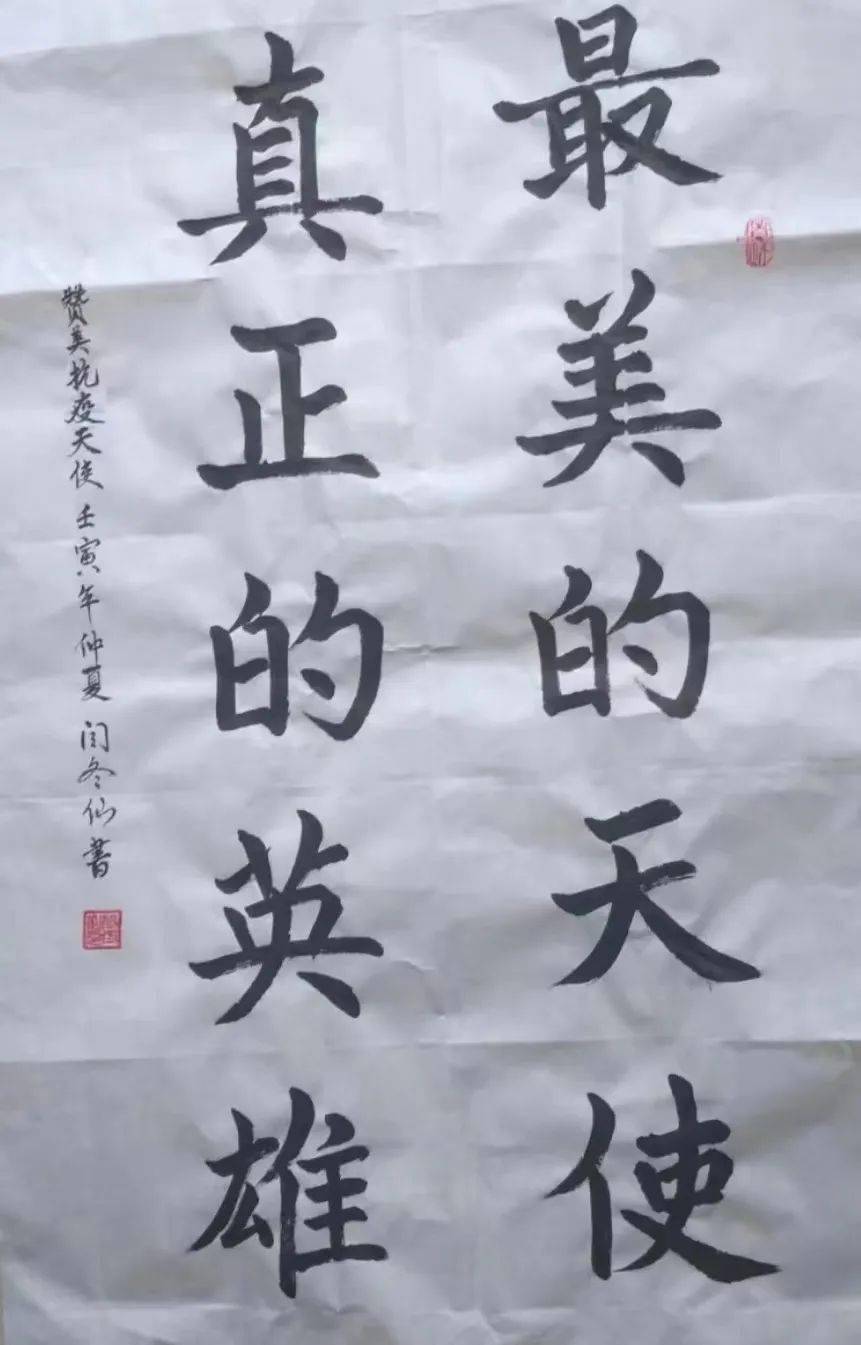 最美的天使
真正的英雄
赞美抗疫天使 壬寅年仲夏 闫冬仙书